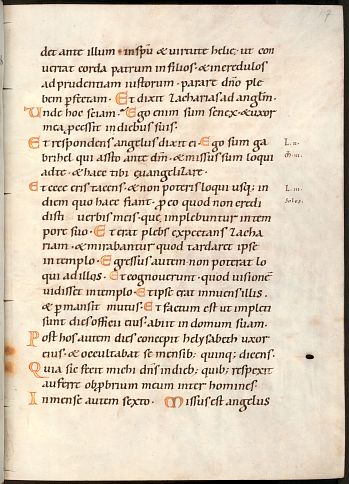 det ante illum · inspu & uirtute helie; ut con
uertat corda patrum infilios · & incredulos
adprudentiam iustorum · parare dno ple
bem pfectam · Et dixit Zacharias ad anglm ·
Unde hoc sciam · Ego enim sum senex · & uxor
mea pcessit indiebus suis ·
Et respondens angelus dixit ei · Ego sum ga
brihel qui asto ante dm · & missus sum loqui
adte · & haec tibi euangelizare ·
Et ecce eris tacens · & non poteris loqui usq; in
diem quo haec fiant · p eo quod non credi
disti uerbis meis · que implebuntur intem
pore suo · Et erat plebs expectans zacha
riam · & mirabantur quod tardaret ipse
in templo · Egressus autem non poterat lo
qui ad illos · Et cognouerunt · quod uisione
uidisset in templo · Et ipse erat innuens illis ·
& pmansit mutus · Et factum est ut impleti
sunt dies officii eius · abiit in domum suam ·
Post hos autem dies concepit helysabeth uxor
eius · & occultabat se mensib; quinq; dicens ·
Quia sic fecit michi dns in dieb; quib; respexit
auferre obprbrium meum inter homines ·
In mense autem sexto · Missus est angelus
L. ii.
L. iii.